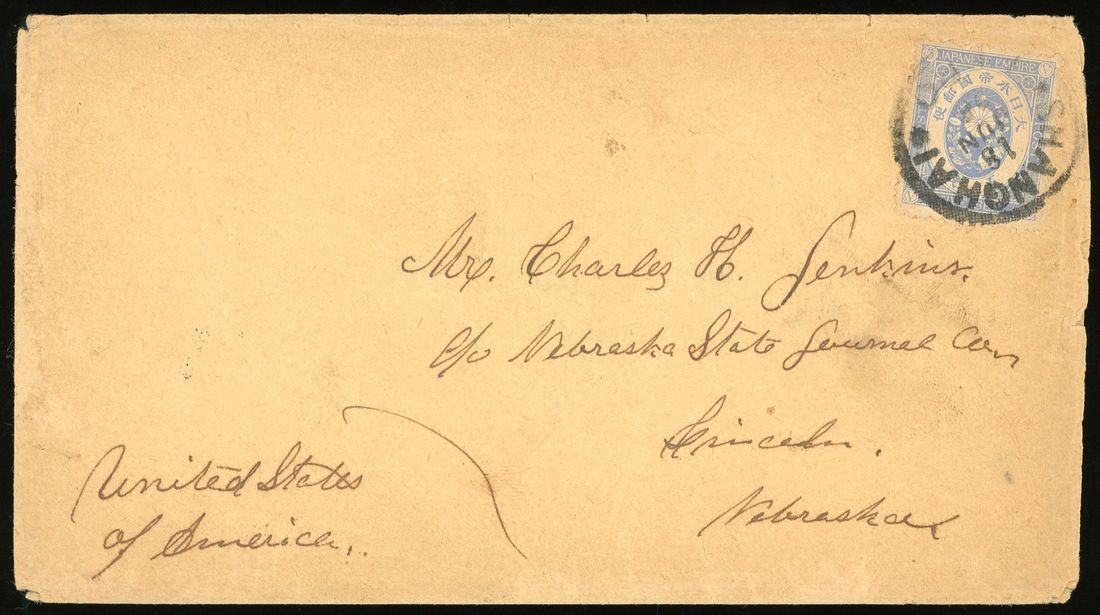 JAPANESE EMPIRE
大日本帝國郵便
SHANGHAI
18
JUN
Mr. Charles H. Jenkins.
c/o Nebraska State Journal Com
Lincoln.
Nebraska
United States
of America,.